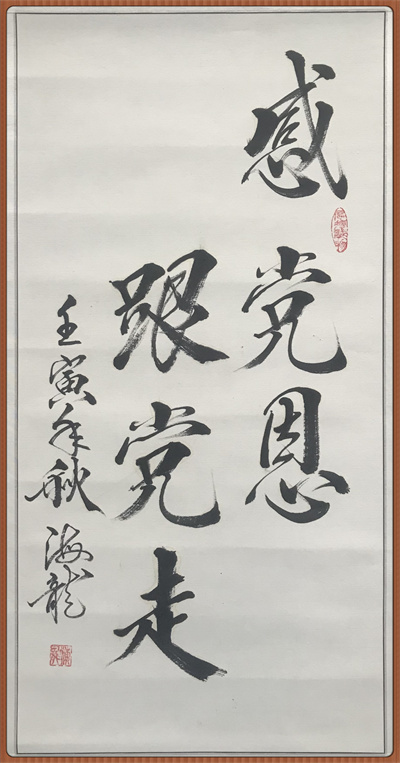 感党恩
跟党走
壬寅年秋 海龙